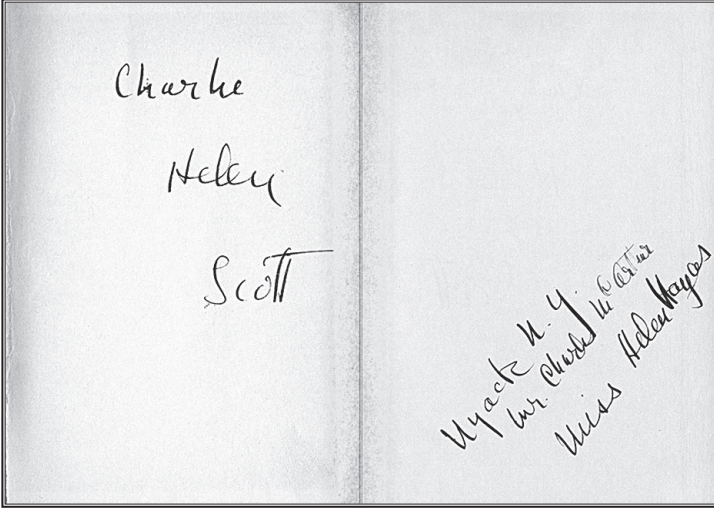 Charlie
Helen
Scott
Nyack N.Y.
Mr. Charles McArtur
Miss Helen Hayes